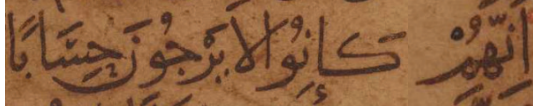 اِنَّهُمْ كَانُوا لَا يَرْجُونَ حِسَابًا